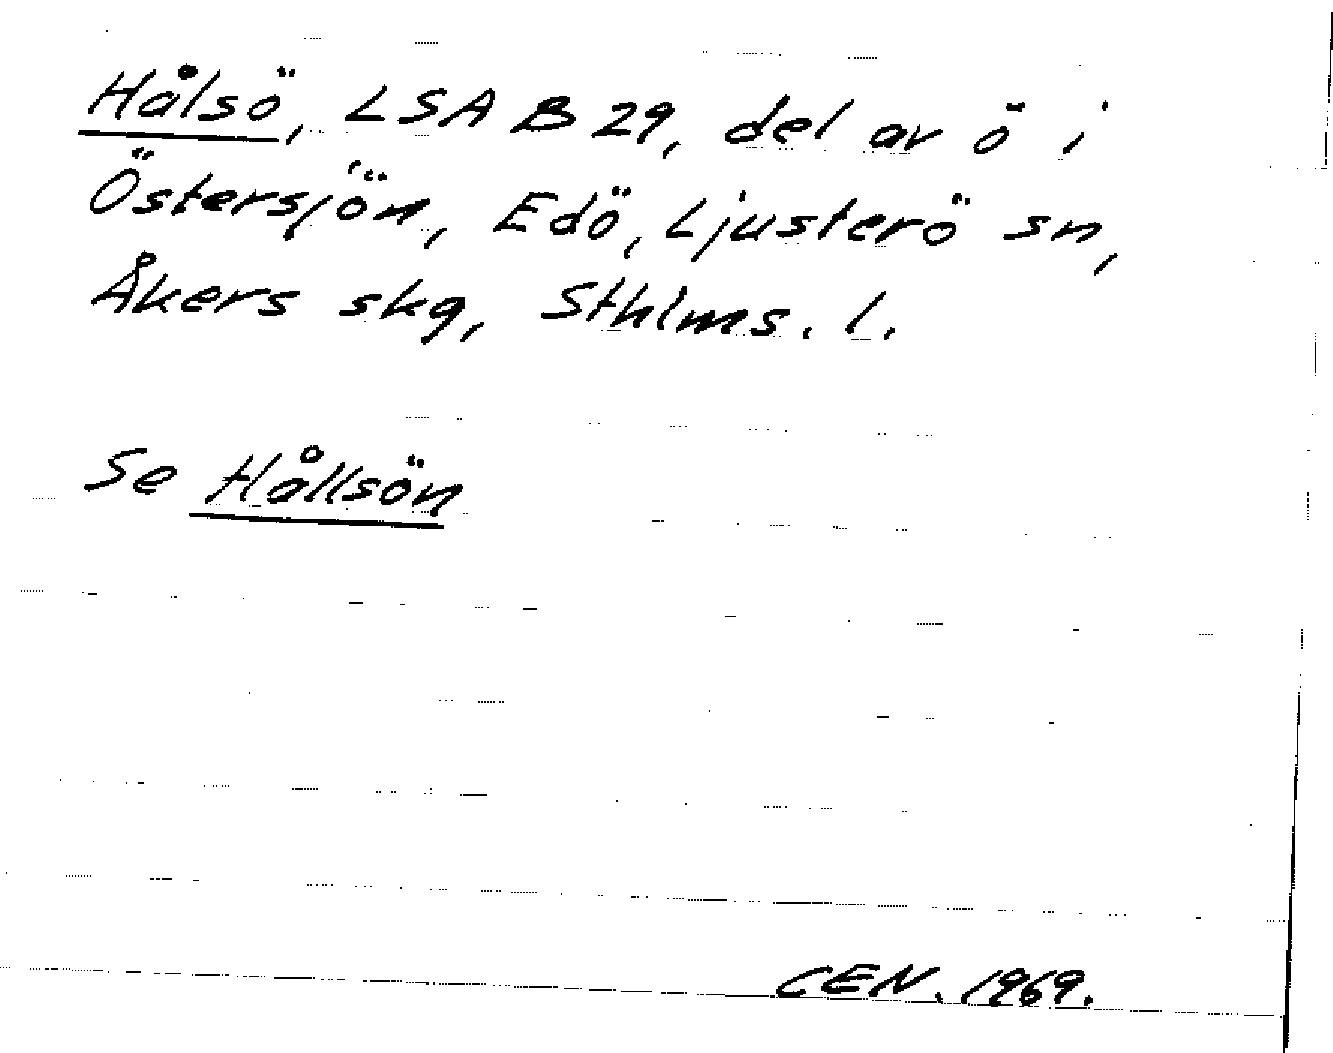 Hålsö, LSA B 29, del av ö i
Östersjön, Edö, Ljusterö sn,
Åkers skg, Sthlms. l.
Se Hållsön
CEN. 1969.